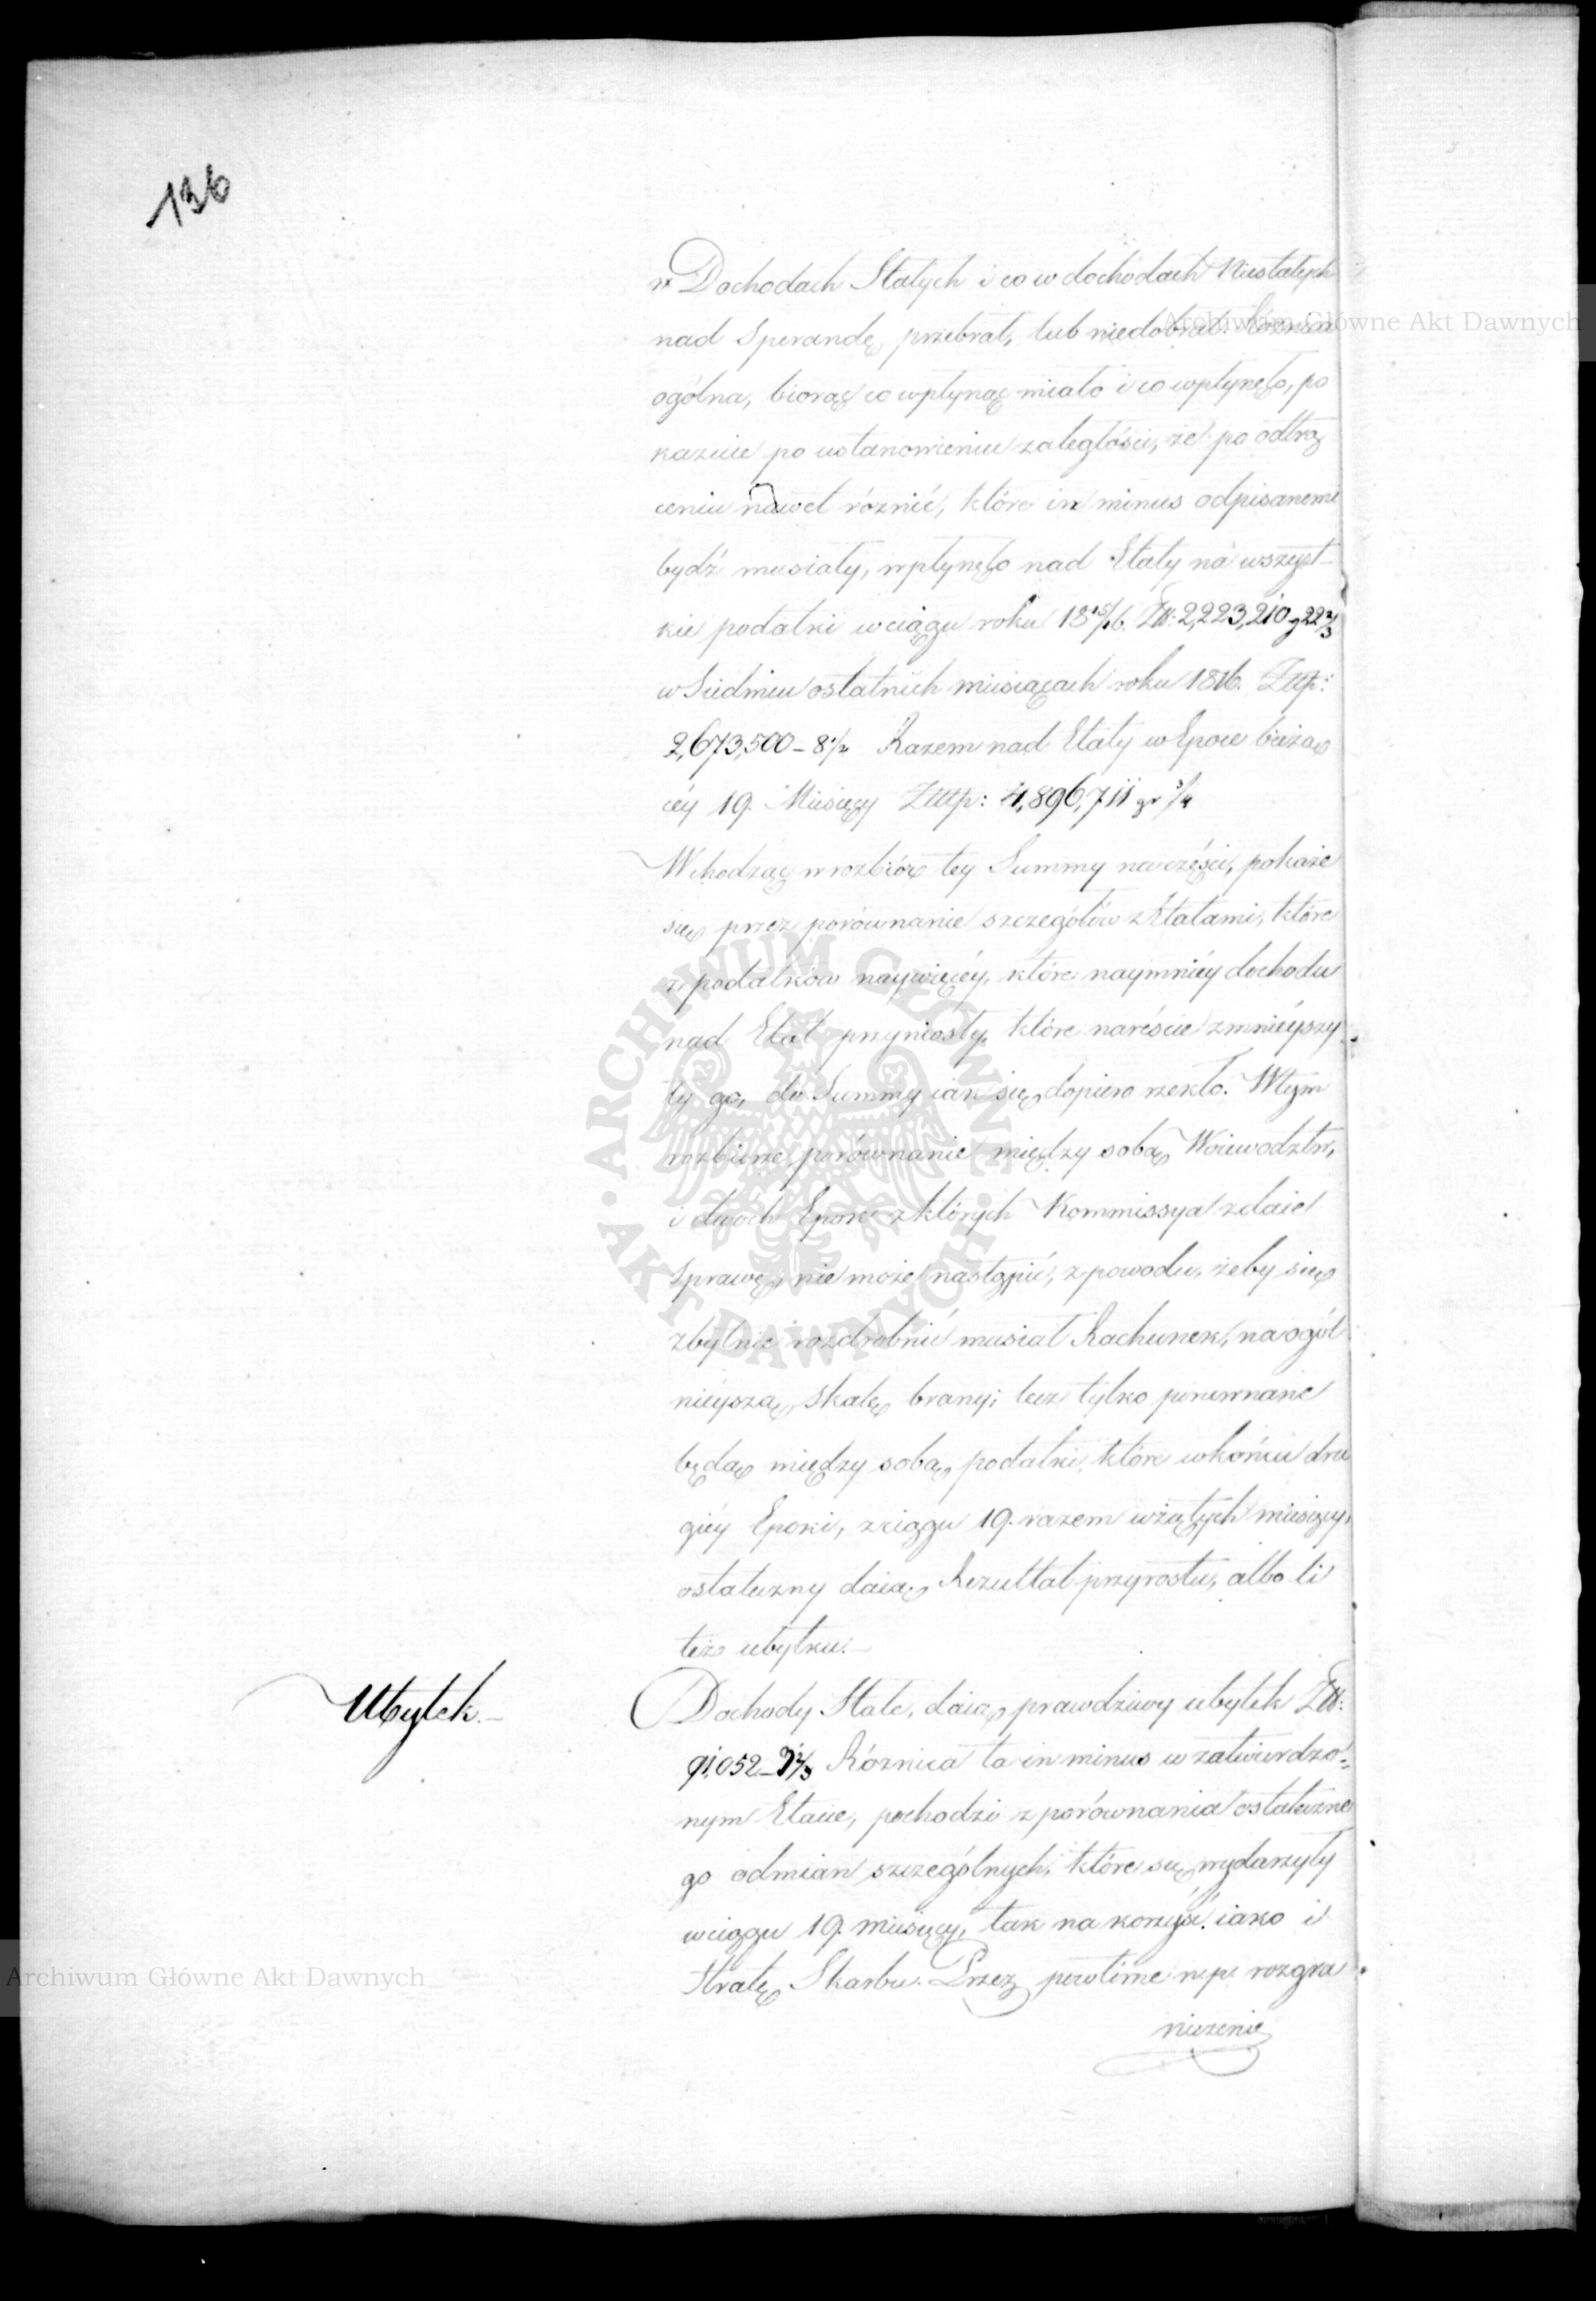 136
w Dochodach Stałych i co w dochodach Niestałych
nad Sperandę przebrał, lub niedobrał. Różnica
ogólna, biorąc co wpłynąć miało i co wpłynęło, po
każe po ustanowieniu zaległości, że po odtrą
ceniu nawet różnić, które in minus odpisanemi
bydź musiały, wpłynęło nad Etaty na wszyst-
kie podatki w ciągu roku 18 15/16. Złł: 2,223,210 g 22 2/3
w Siedmiu ostatnich miesiącach roku 1816. Złtp:
2,673,500 – 8 1/2 Razem nad Etaty w Epoce bieżą
céy 19. Miesięcy Złłtp: 4,896,711 gr 3/4
Wchodząc w rozbiór tey Summy na części, pokaże
się przez porównanie szczegółów z Etatami, które
z podatków naywięcéy, które naymniéy dochodu
nad Etat przyniosły, które nareście zmniéyszy
ły go, do Summy iak się dopiero rzekło. W tym
rozbiorze porównanie między sobą Woiewodztw,
i dwóch Epok z których Kommissya zdaie
Sprawę, nie może nastąpić, z powodu, żeby się
zbytnie rozdrobnić musiał Rachunek, na ogól
niéyszą skalę brany; lecz tylko porównane
będą między sobą podatki, które w końcu dru
giéy Epoki, z ciągu 19. razem wziętych miesięcy,
ostateczny daią Rezultat przyrostu, albo li
też ubytku.–
Ubytek.–
Dochody Stałe, daią prawdziwy ubytek Złł:
91,052 – Różnica ta in minus w zatwierdzo=
nym Etacie, pochodzi z porównania ostateczne
go odmian szczególnych, które się wydarzyły
w ciągu 19. miesięcy, tak na korzyść iako i
stratę Skarbu. Przez powtórne n.p. rozgra
niczenie
Archiwum Główne Akt Dawnych
ARCHIWUM GŁÓWNE · AKT DAWNYCH ·
Archiwum Główne Akt Dawnych